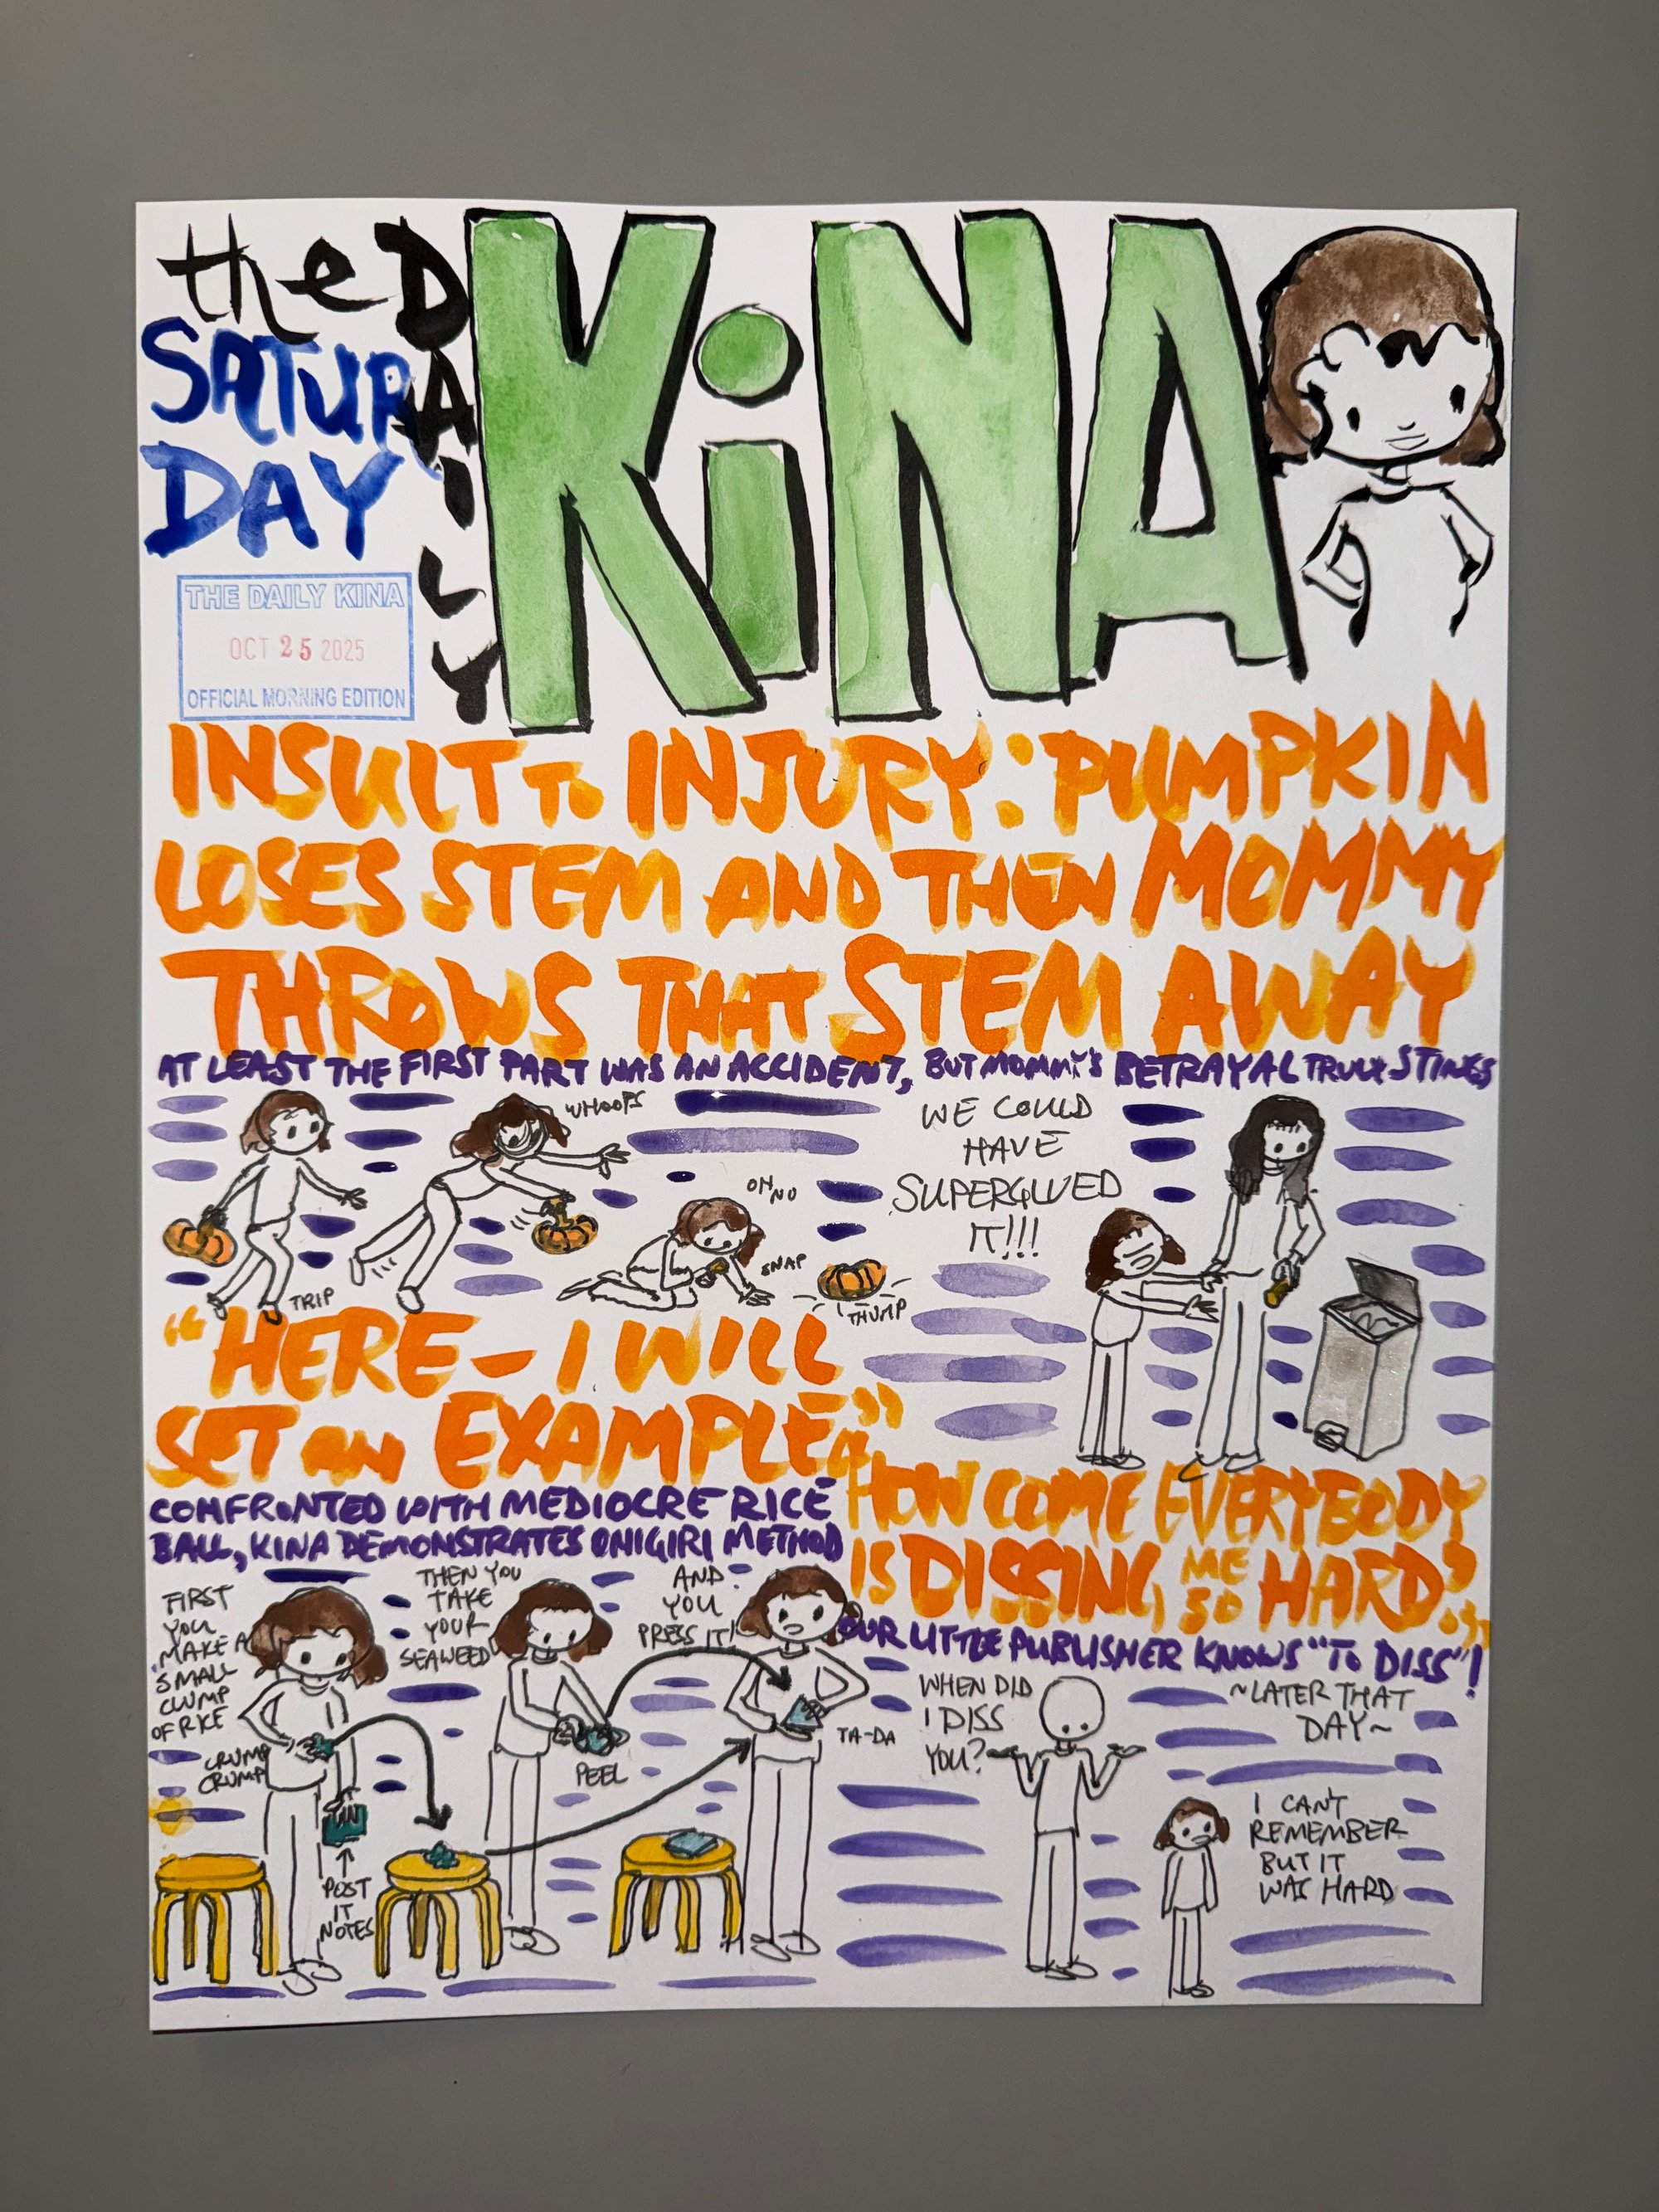 the DAILY KiNA
SATUR
DAY
THE DAILY KINA
OCT 25 2025
OFFICIAL MORNING EDITION
INSULT TO INJURY: PUMPKIN
LOSES STEM AND THEN MOMMY
THROWS THAT STEM AWAY
AT LEAST THE FIRST PART WAS AN ACCIDENT, BUT MOMMY'S BETRAYAL TRULY STINGS
TRIP
WHOOPS
OH NO
SNAP
THUMP
WE COULD
HAVE
SUPERGLUED
IT!!!
"HERE - I WILL
SET AN EXAMPLE"
CONFRONTED WITH MEDIOCRE RICE
BALL, KINA DEMONSTRATES ONIGIRI METHOD
FIRST
YOU
MAKE A
SMALL
CLUMP
OF RICE
CRUMP
CRUMP
POST
IT
NOTES
THEN YOU
TAKE
YOUR
SEAWEED
PEEL
AND
YOU
PRESS IT!
TA-DA
"HOW COME EVERYBODY
IS DISSING ME SO HARD?"
OUR LITTLE PUBLISHER KNOWS "TO DISS"!
WHEN DID
I DISS
YOU?
~LATER THAT
DAY~
I CAN'T
REMEMBER
BUT IT
WAS HARD